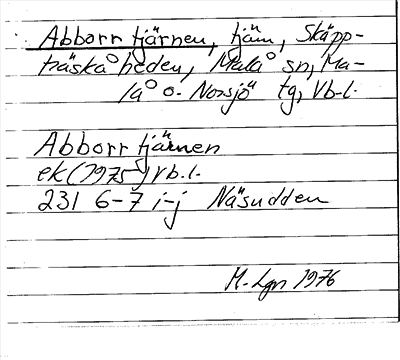 Abborrtjärnen, tjärn, Skäpp-
träskåheden, Malå sn, Ma-
lå o. Norsjö tg, Vb-l.
Abborrtjärnen
ek (1975) Vb.l.
231 6-7 i-j Näsudden
M. Lgn 1976